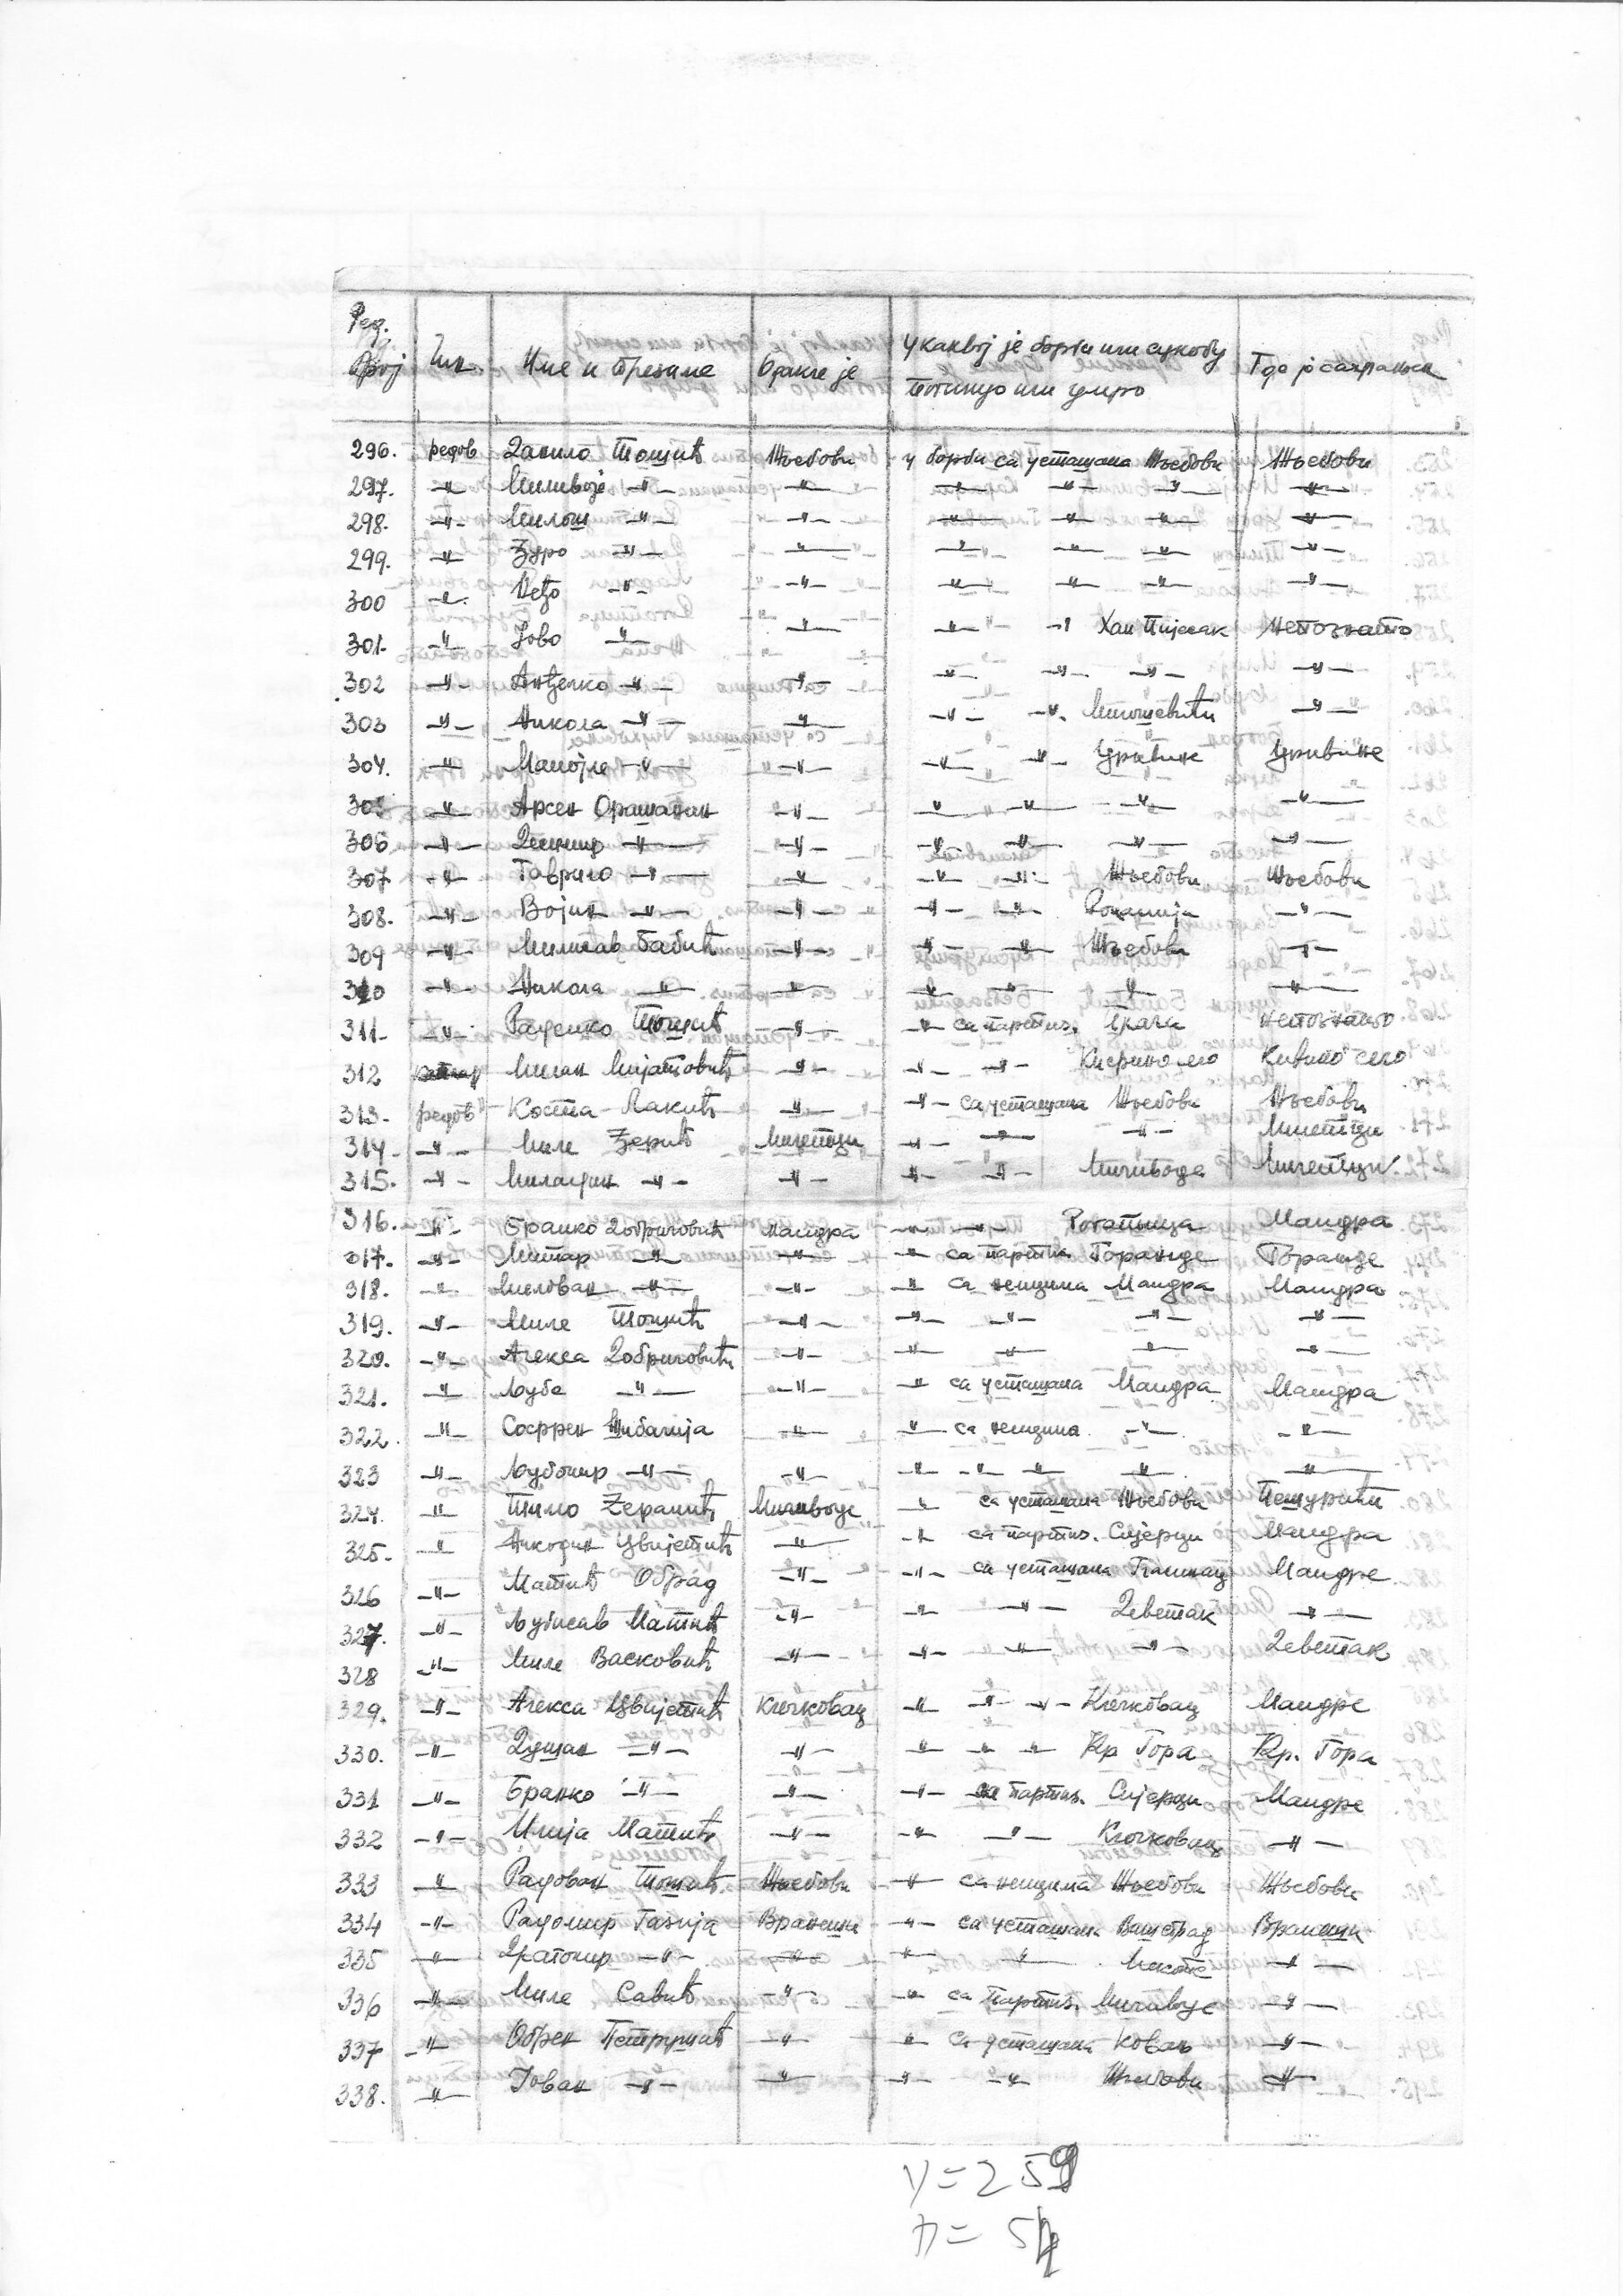 Ред. број Чин. Име и презиме Одакле је У каквој је борби или сукобу погинуо или умро Гдје је сахрањен
296. редов Данило Тошић Жљебови у борби са усташама Жљебови Жљебови
297. –"– Миливоје –"– –"– –"– –"– –"– –"–
298. –"– Милош –"– –"– –"– –"– –"– –"–
299. –"– Ђуро –"– –"– –"– –"– –"– –"–
300 –"– Неђо –"– –"– –"– –"– –"– –"–
301. –"– Јово –"– –"– –"– –"– Хан Пијесак Непознато
302 –"– Анђелко –"– –"– –"– –"– –"– –"–
303 –"– Никола –"– –"– –"– –"– Милошевићи –"–
304. –"– Манојле –"– –"– –"– –"– Цривине Цривине
305 –"– Арсен Орашанин –"– –"– –"– –"– –"–
306 –"– Десимир –"– –"– –"– –"– –"– –"–
307 –"– Гаврило –"– –"– –"– –"– Жљебови Жљебови
308. –"– Војин –"– –"– –"– –"– Романија –"–
309 –"– Милисав Бабић –"– –"– –"– Жљебови –"–
310 –"– Никола –"– –"– –"– –"– –"– –"–
311. –"– Раденко Тошић –"– –"– са партиз. Прача непознато
312 Милан Мијатовић –"– –"– –"– село
313. редов Коста Лакић –"– –"– са усташама Жљебови Жљебови
314. –"– Миле Ђерић –"– –"– –"–
315. –"– Миладин –"– –"– –"– –"–
316. –"– Бранко Добриловић Мандра –"– –"– Рогатица Мандра
317. –"– Митар –"– –"– –"– са партиз. Горажде Горажде
318. –"– Милован –"– –"– –"– са немцима Мандра Мандра
319. –"– Миле Тошић –"– –"– –"– –"– –"–
320. –"– Алекса Добриловић –"– –"– –"– –"– –"–
321. –"– Љубе –"– –"– –"– са усташама Мандра Мандра
322. –"– Софрен Шибалија –"– –"– са немцима –"– –"–
323 –"– Љубомир –"– –"– –"– –"– –"– –"– –"–
324. –"– Тимо Ђерашић Миливоје –"– са усташама Жљебови Пешурићи
325. –"– Никодин Цвијетић –"– –"– са партиз. Сјерци Мандра
326 –"– Матић Обрад –"– –"– са усташама Гласинац Мандре
327. –"– Љубисав Матић –"– –"– –"– Деветак –"–
328 –"– Миле Васковић –"– –"– –"– –"– Деветак
329. –"– Алекса Цвијетић Кločковац –"– –"– –"– Клочковац Мандре
330. –"– Душан –"– –"– –"– –"– –"– Кр Гора Кр. Гора
331 –"– Бранко –"– –"– –"– са партиз. Сјерци Мандре
332 –"– Илија Матић –"– –"– –"– Клочковац –"–
333 –"– Радован Тошић Жљебови –"– са немцима Жљебови Жљебови
334 –"– Радомир Газија Вранеши –"– са усташама Вишеград Вранеши
335 –"– Драгомир –"– –"– –"– –"– –"–
336 –"– Миле Савић –"– –"– са партиз. Миливоје –"–
337 –"– Обрен Петрушић –"– –"– са усташама Ковањ –"–
338. –"– Јован –"– –"– –"– –"– Жљебови –"–
У = 259
П = 54